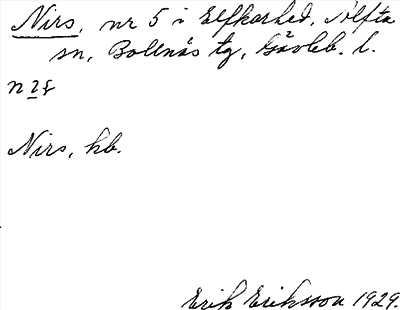 Nirs, nr 5 i Elfkarhed, Alfta
sn, Bollnäs tg, Gävleb. l.
Nirs, hb.
Erik Eriksson 1929.